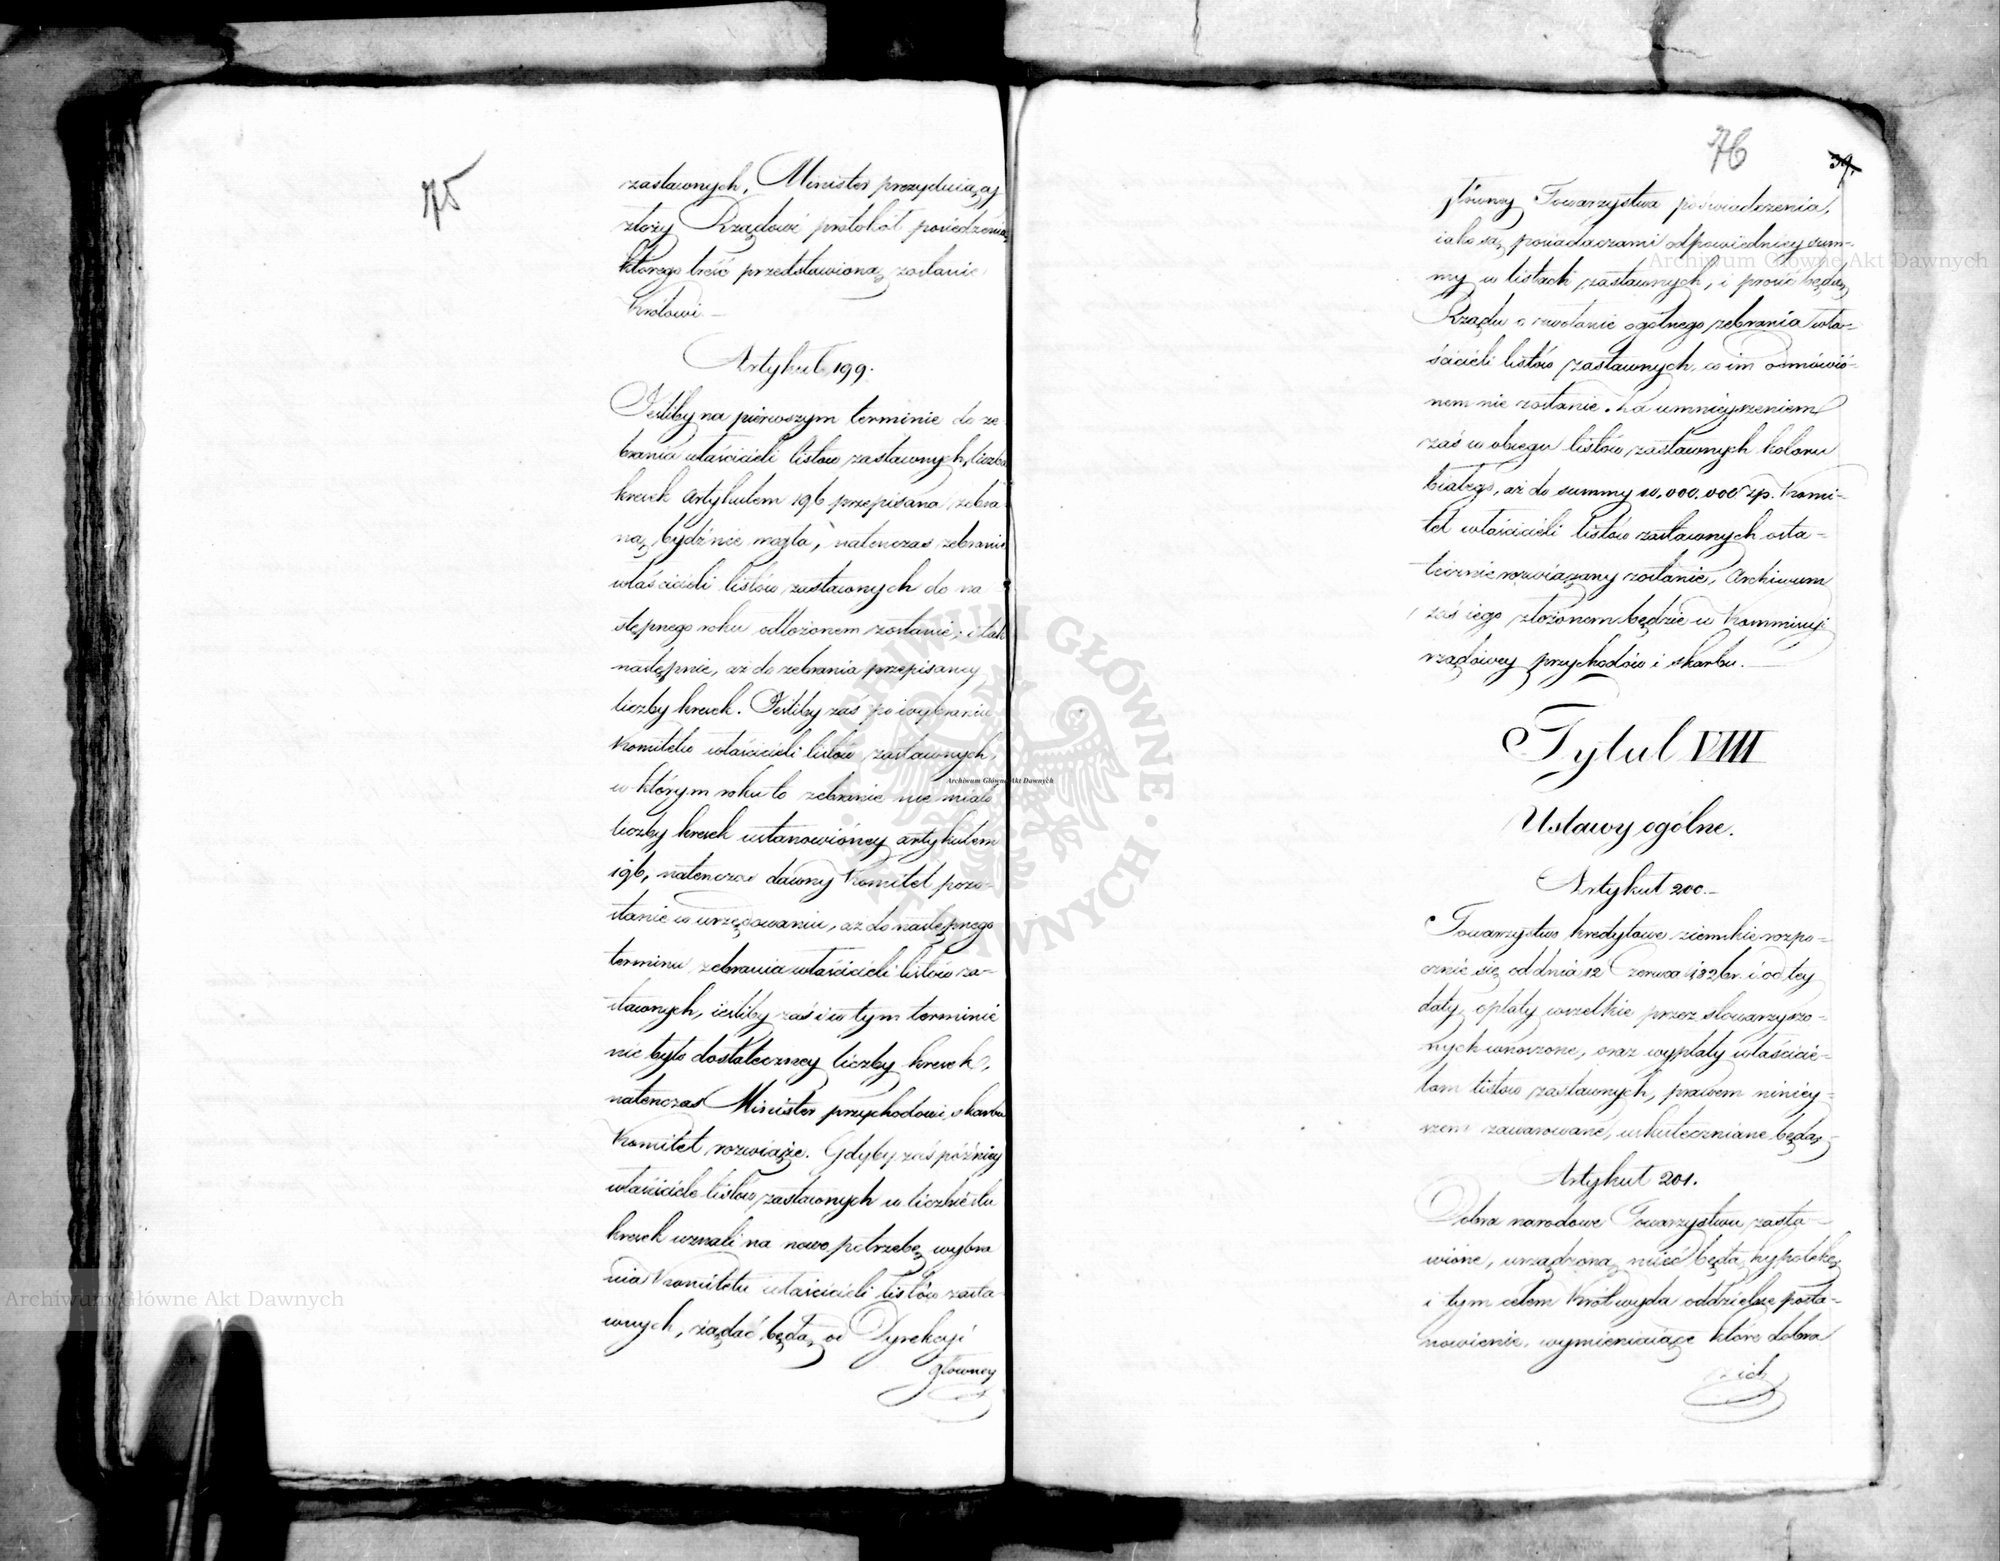 75
zastawnych, Minister prezyduiący
złoży Rządowi protokół posiedzenia
którego treść przedstawioną zostanie
Królowi.—
Artykuł 199.
Jeśliby na pierwszym terminie do ze
brania właścicieli listów zastawnych, liczba
kresek Artykułem 196 przepisana zebra
ną bydź nie mogła, natenczas zebranie
właścicieli listów zastawnych do na
stępnego roku odłożonem zostanie, i tak
następnie, aż do zebrania przepisaney
liczby kresek. Jeśliby zaś po wybraniu
Komitetu właścicieli listów zastawnych,
w którym roku to zebranie nie miało
liczby kresek ustanowioney artykułem
196, natenczas dawny Komitet pozo-
stanie w urzędowaniu, aż do następnego
terminu zebrania właścicieli listów za-
stawnych, ieśliby zaś i w tym terminie
nie było dostateczney liczby kresek,
natenczas Minister przychodów i skarbu
Komitet rozwiąże. Gdyby zaś późniey
właściciele listów zastawnych w liczbie stu
kresek uznali na nowo potrzebę wybra
nia Komitetu właścicieli listów zasta-
wnych, żądać będą od Dyrekcyi
główney
76
39.
strony Towarzystwa poświadczenia,
iako są posiadaczami odpowiedniey sum-
my w listach zastawnych, i prosić będą
Rządu o zwołanie ogólnego zebrania wła-
ścicieli listów zastawnych, co im odmówio-
nem nie zostanie. Za umnieyszeniem
zaś w obiegu listów zastawnych koloru
białego, aż do summy 10,000.000 złp. Komi-
tet właścicieli listów zastawnych osta-
tecznie rozwiązany zostanie, Archiwum
zaś iego złożonem będzie w Kommissyi
rządowey przychodów i skarbu.—
Tytuł VIII
Ustawy ogólne.
Artykuł 200.—
Towarzystwo kredytowe ziemskie rozpo-
cznie się od dnia 12 Czerwca 1826r. i od tey
daty, opłaty wszelkie przez stowarzyszo-
nych wnoszone, oraz wypłaty właścicie-
lom listów zastawnych, prawem niniey-
szem zawarowane, uskuteczniane będą.—
Artykuł 201.
Dobra narodowe Towarzystwu zasta-
wione, urządzoną mieć będą hypotekę
i tym celem Król wyda oddzielne posta-
nowienie, wymieniaiące które dobra
z ich
Archiwum Główne Akt Dawnych
Archiwum Główne Akt Dawnych
Archiwum Główne Akt Dawnych
ARCHIWUM GŁÓWNE AKT DAWNYCH